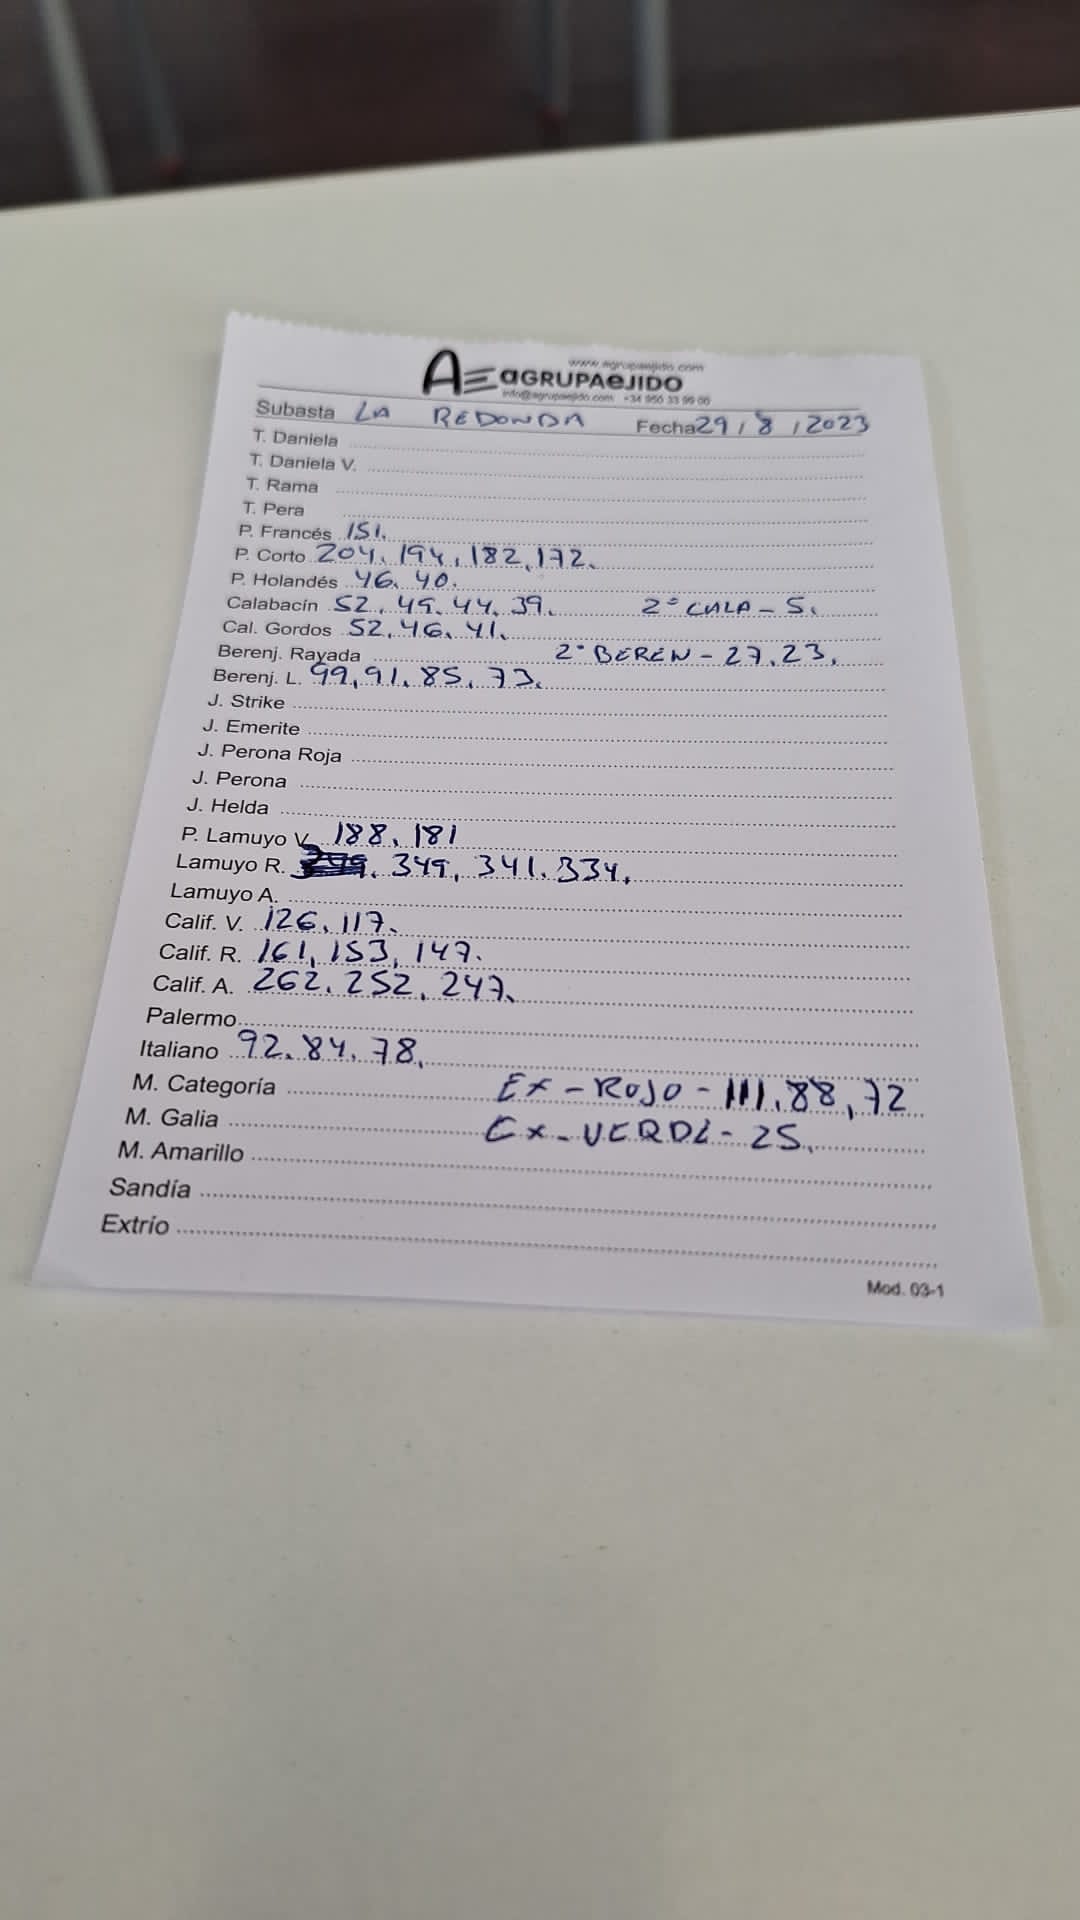 www.agrupaejido.com
AE aGRUPAeJIDO
info@agrupaejido.com +34 950 33 99 00
Subasta LA REDONDA Fecha 29 / 8 / 2023
T. Daniela
T. Daniela V.
T. Rama
T. Pera
P. Francés 151.
P. Corto 204, 194, 182, 172.
P. Holandés 46, 40.
Calabacín 52, 49, 44, 39. 2ª CALA - 5.
Cal. Gordos 52, 46, 41.
Berenj. Rayada 2ª BEREN - 27, 23.
Berenj. L. 99, 91, 85, 73.
J. Strike
J. Emerite
J. Perona Roja
J. Perona
J. Helda
P. Lamuyo V. 188, 181
Lamuyo R. 349, 341, 334.
Lamuyo A.
Calif. V. 126, 117.
Calif. R. 161, 153, 147.
Calif. A. 262, 252, 247.
Palermo
Italiano 92, 84, 78.
M. Categoría EX - ROJO - 111, 88, 72
M. Galia EX - VERDE - 25.
M. Amarillo
Sandía
Extrío
Mod. 03-1